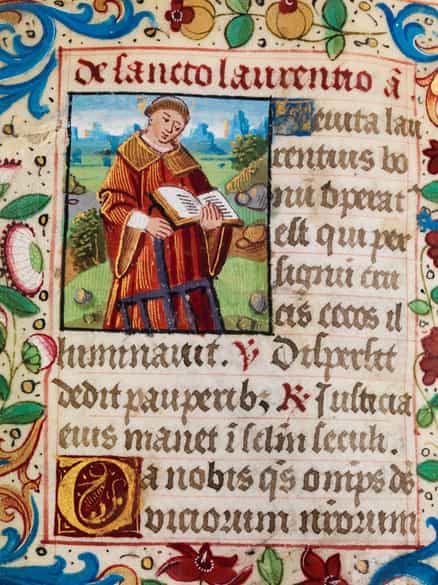 de sancto laurentio ā
Leuita lau
rentius bo
nū operat
est qui per
signū cru
cis cecos il
luminauit. V Dispersit
dedit pauperib; R Iusticia
eius manet ī sclm seculi.
Da nobis q̄s om̄ps ds
viciorum nr̄orum